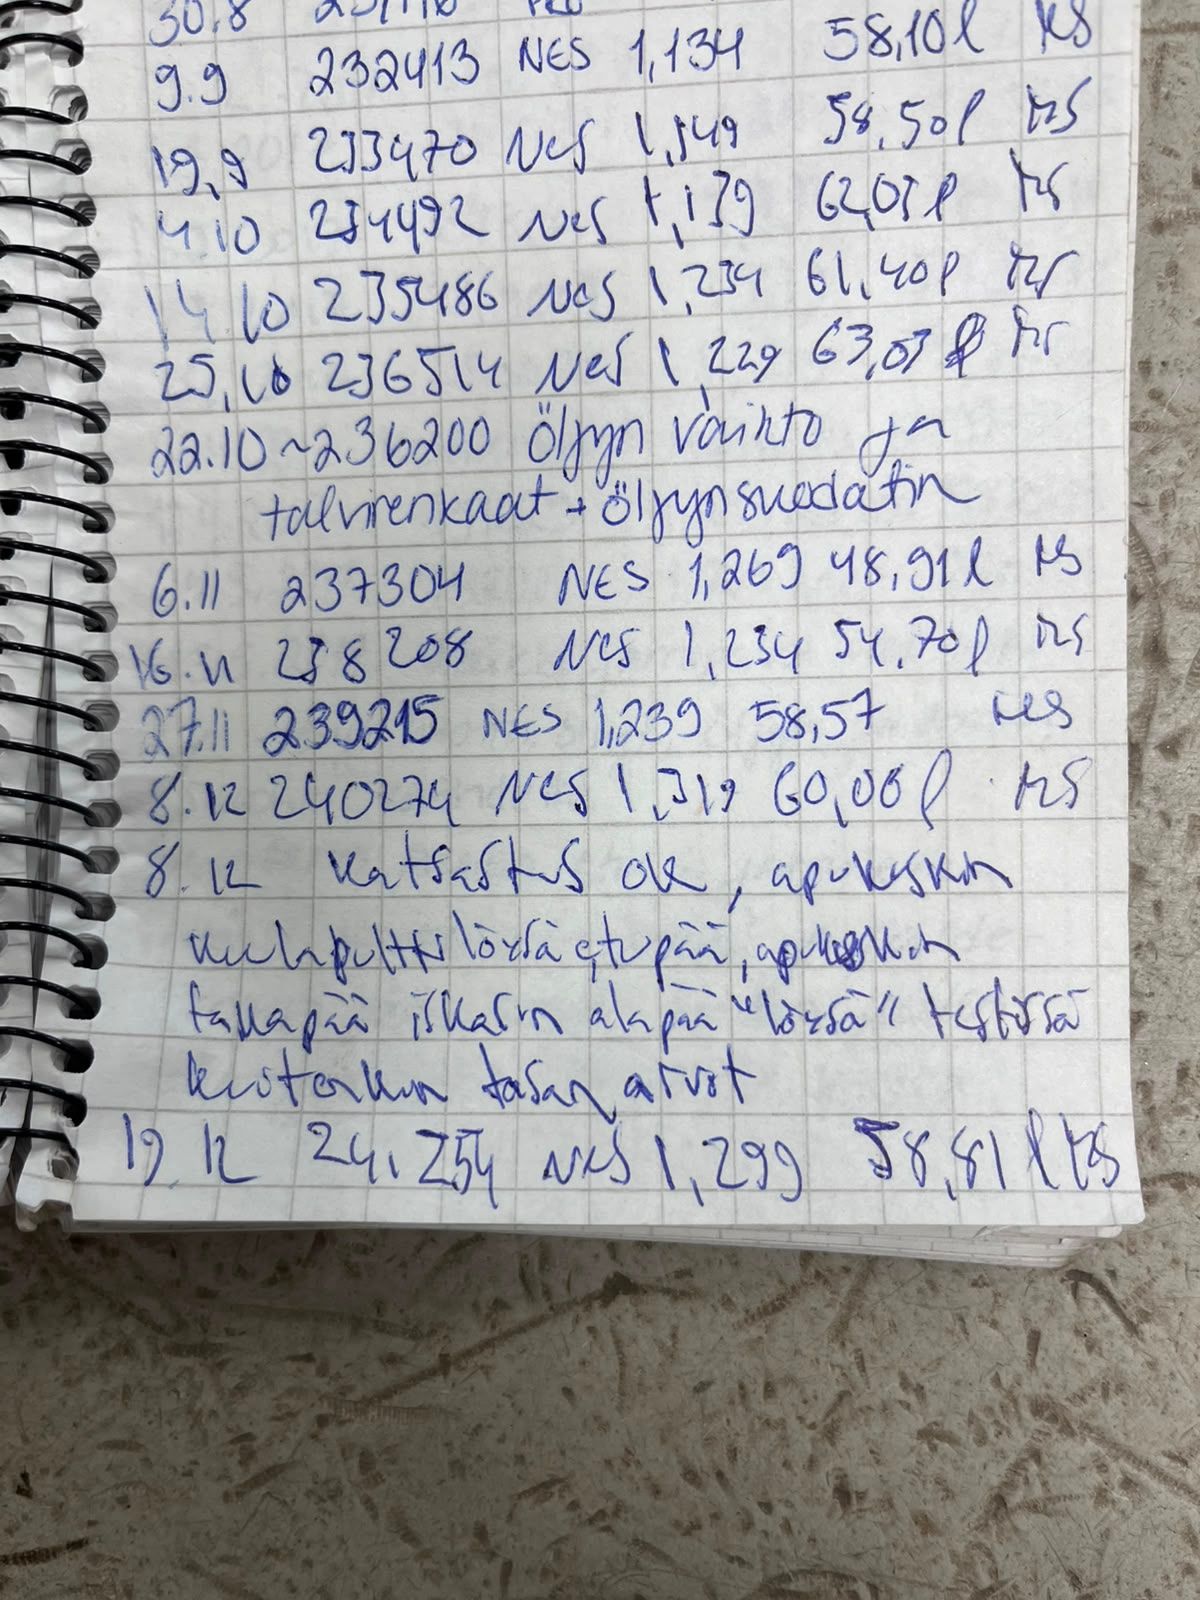 30.8
9.9 232413 NES 1,134 58,10l KS
19,9 233470 NES 1,149 58,50l KS
4.10 234492 NES 1,139 62,03l KS
14.10 235486 NES 1,234 61,40l KS
25,10 236514 NES 1,229 63,03 l KS
22.10 ~236200 Öljyn vaihto ja
talvirenkaat + öljynsuodatin
6.11 237304 NES 1,269 48,91l KS
16.11 238208 NES 1,234 54,70l KS
27.11 239215 NES 1,239 58,57 KS
8.12 240274 NES 1,319 60,00l KS
8.12 Katsastus OK, apukeskin
löysä etupää, apukeskin
takapää iskarin alapää "löysä" testissä
kuitenkin tasan arvot
19.12 241254 NES 1,299 58,81 l KS